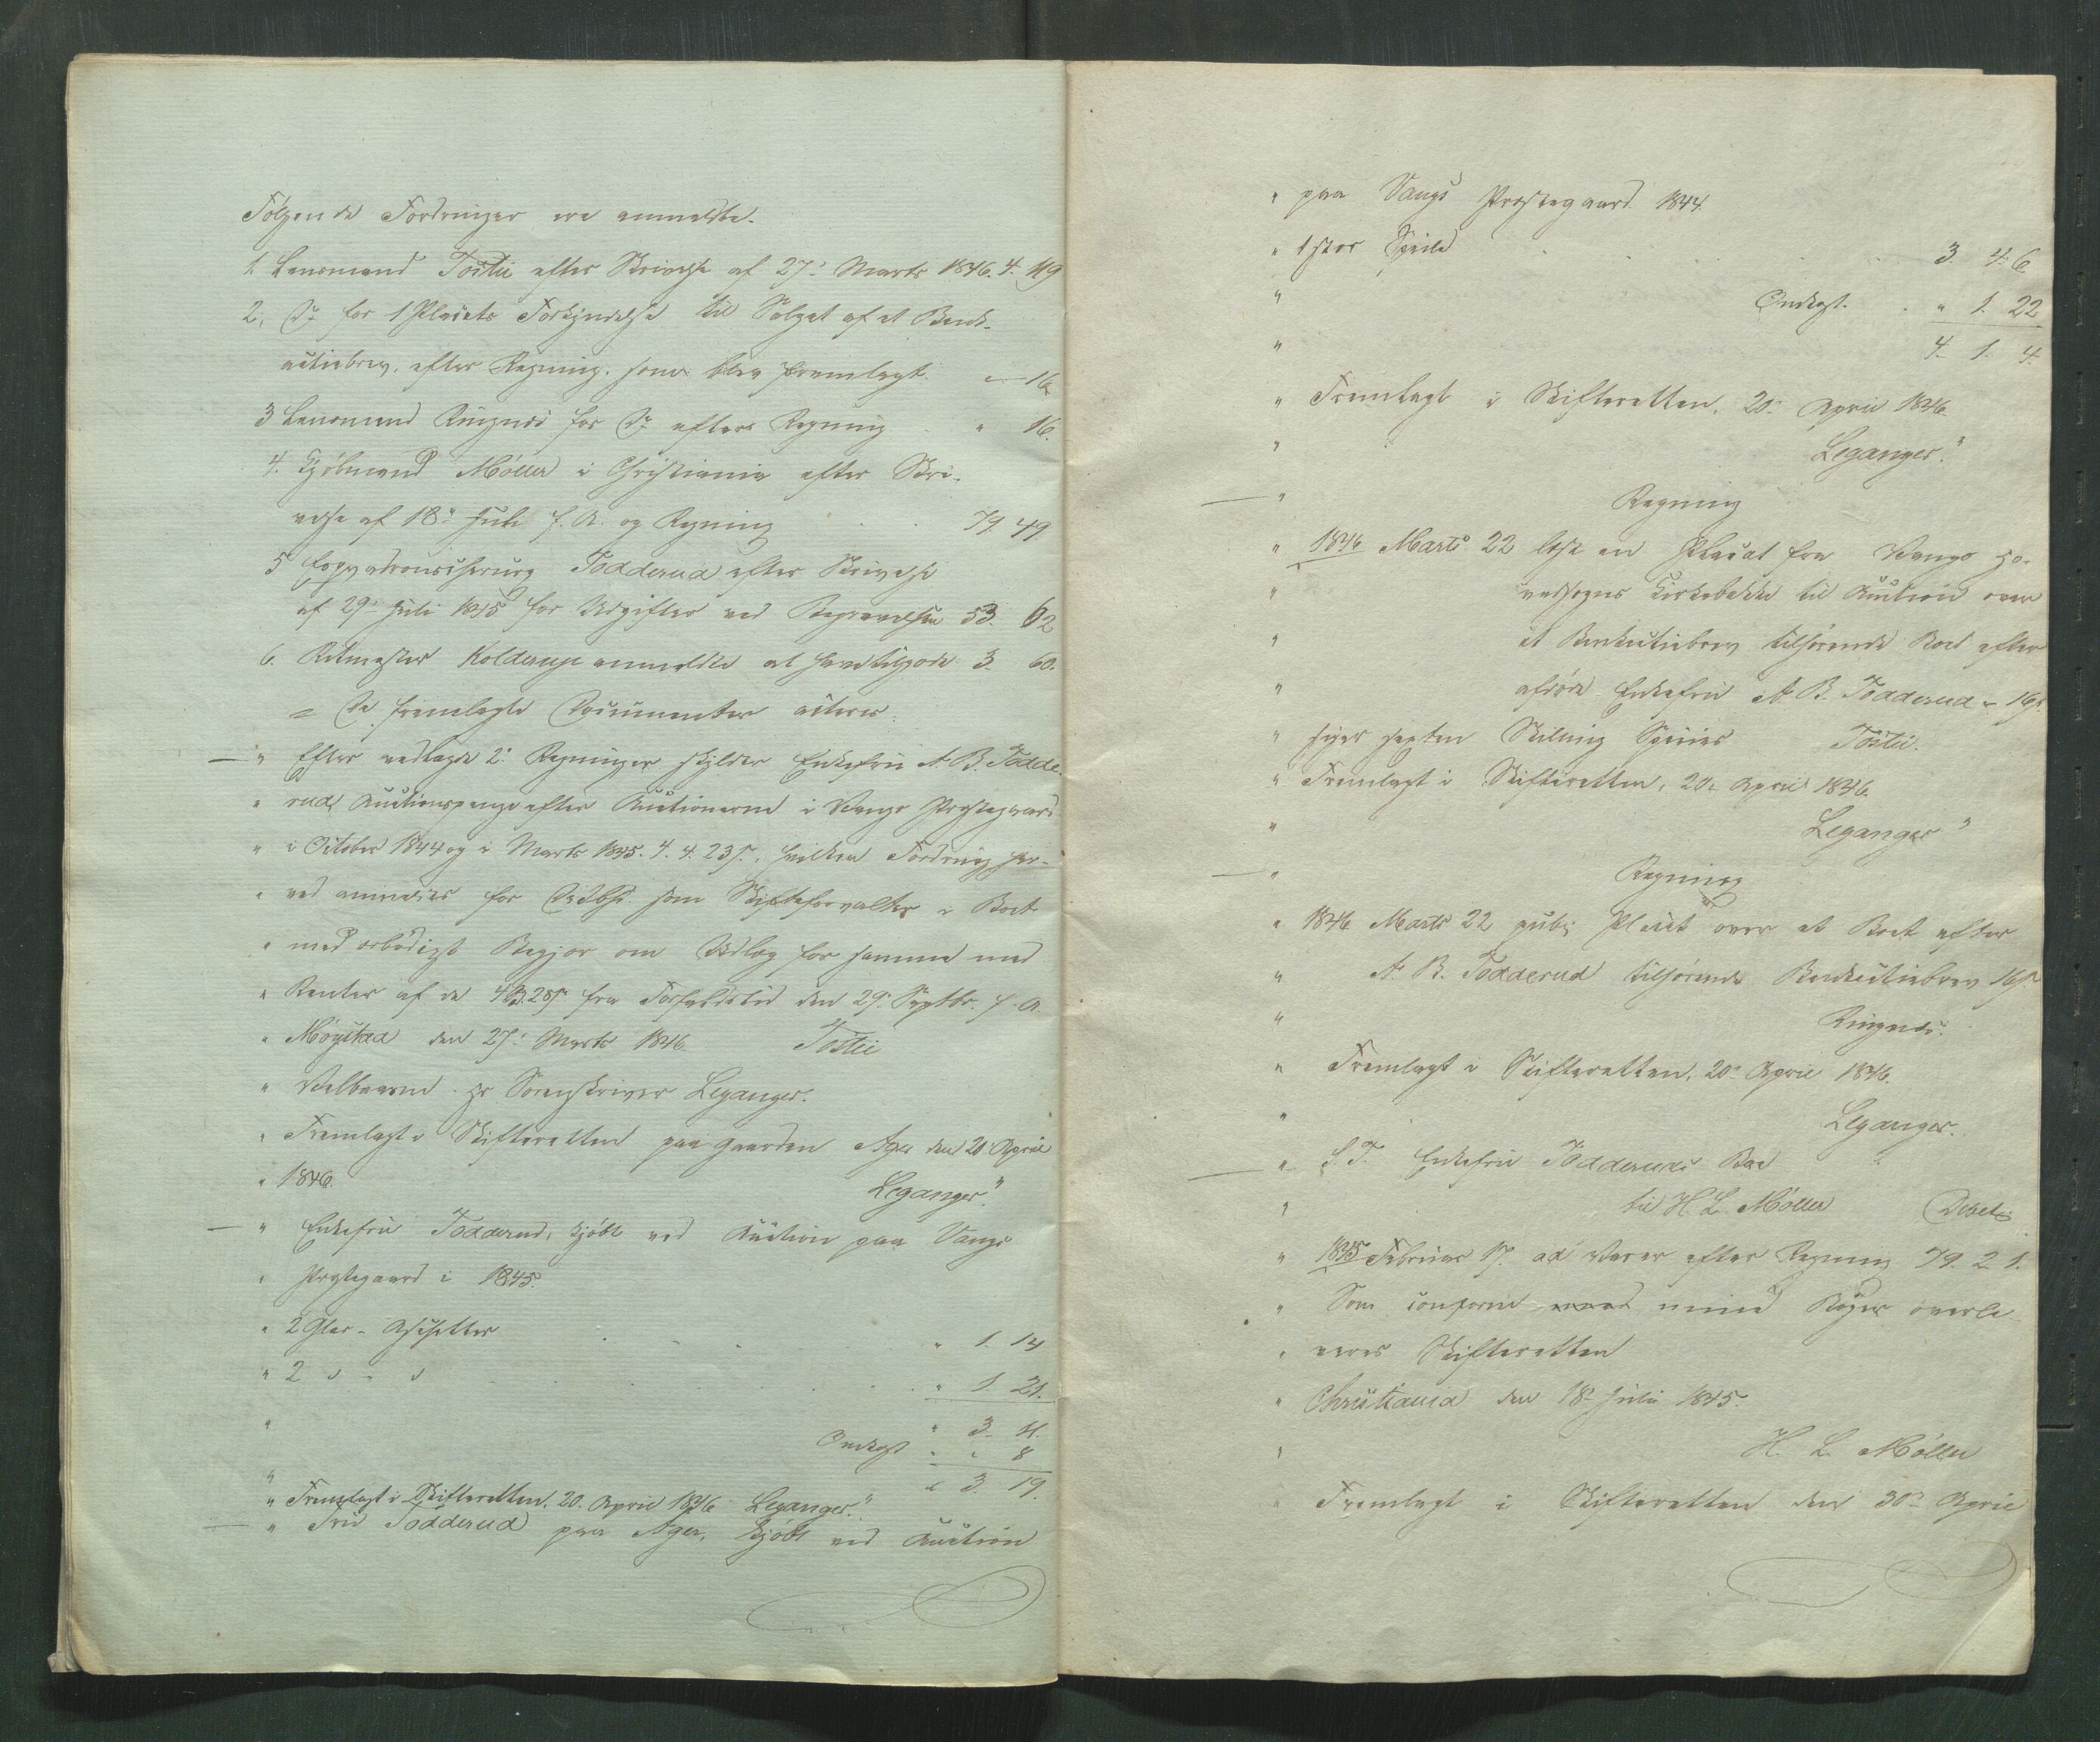 Følgende Fordringer ere anmeldte.
1. Lensmand Tostie efter Skrivelse af 27de Marts 1846. 4. 119
2. Do for 1 Placats Forkyndelse til Salget af et Bank-
actiebrev, efter Regning, som blev fremlagt " 16
3 Lensmand Ringnes for Do efter Regning " 16.
4. Kjøbmand Møller i Christiania efter Skri-
velse af 18de Juli f. A. og Regning 79 49.
5 Todderud efter Skrivelse
af 29de Juli 1845 for Udgifter ved Begravelsen 53. 62
6. Ritmester Kolderup anmeldte at have tilgode 3. 60.
= De fremlagte Documenter acteres.
" Efter vedlagde 2de Regninger skylder Enkefru A. B. Todde-
" rud Auctionspenge efter Auctionerne i Vangs Præstegaard
" i October 1844 og i Marts 1845. 4. 4. 23 s., hvilken Fordring her-
" ved anmeldes for som Skifteforvalter i Boet
" med ærbødigst Begjær om Udlæg for samme med
" Renter af de fra Forfaldstid den 29de Septbr. f. A.
" Møystad den 27de Marts 1846. Tostie
" Velbaarne Hr Sorenskriver Leganger.
" Fremlagt i Skifteretten paa Gaarden Ager den 20de April
" 1846. Leganger."
" Enkefru Todderud, kjøbt ved Auction paa Vangs
" Præstegaard i 1845.
" 2 Glas-Assietter " 1. 14
" 2 " - " " 1. 21.
" " 3. 11.
Omkost " " 8
" " 3. 19.
" Fremlagt i Skifteretten, 20. April 1846 Leganger."
" Fru Todderud paa Ager, kjøbt ved Auction
" paa Vangs Præstegaard 1844.
" 1 stor 3. 4. 6
" Omkost. " 1. 22
" 4. 1. 4.
" Fremlagt i Skifteretten, 20de April 1846
" Leganger."
" Regning
" 1846 Marts 22 læst en Placat fra Vangs Ho-
" vedsogns Kirkebakke til Auction over
" et Bankactiebrev tilhørende Boet efter
" afdøde Enkefru A. B. Todderud " 16 s.
" siger sexten Skilling Species Tostie.
" Fremlagt i Skifteretten, 20de April 1846.
" Leganger"
" Regning
" 1846 Marts 22 publ. Placat over et Boet efter
" A. B. Todderud tilhørende Bankactiebrev 16 s.
" Ringnes.
" Fremlagt i Skifteretten, 20de April 1846.
" Leganger.
" S. T. Enkefru Todderuds Boe
" til H. L. Møller Debet
" 1845 Februar 17. ad Varer efter Regning 79. 2. 1.
" Som conform med mine Bøger overle-
" veres Skifteretten
" Christiania den 18de Juli 1845.
" H. L. Møller
" Fremlagt i Skifteretten den 30te April